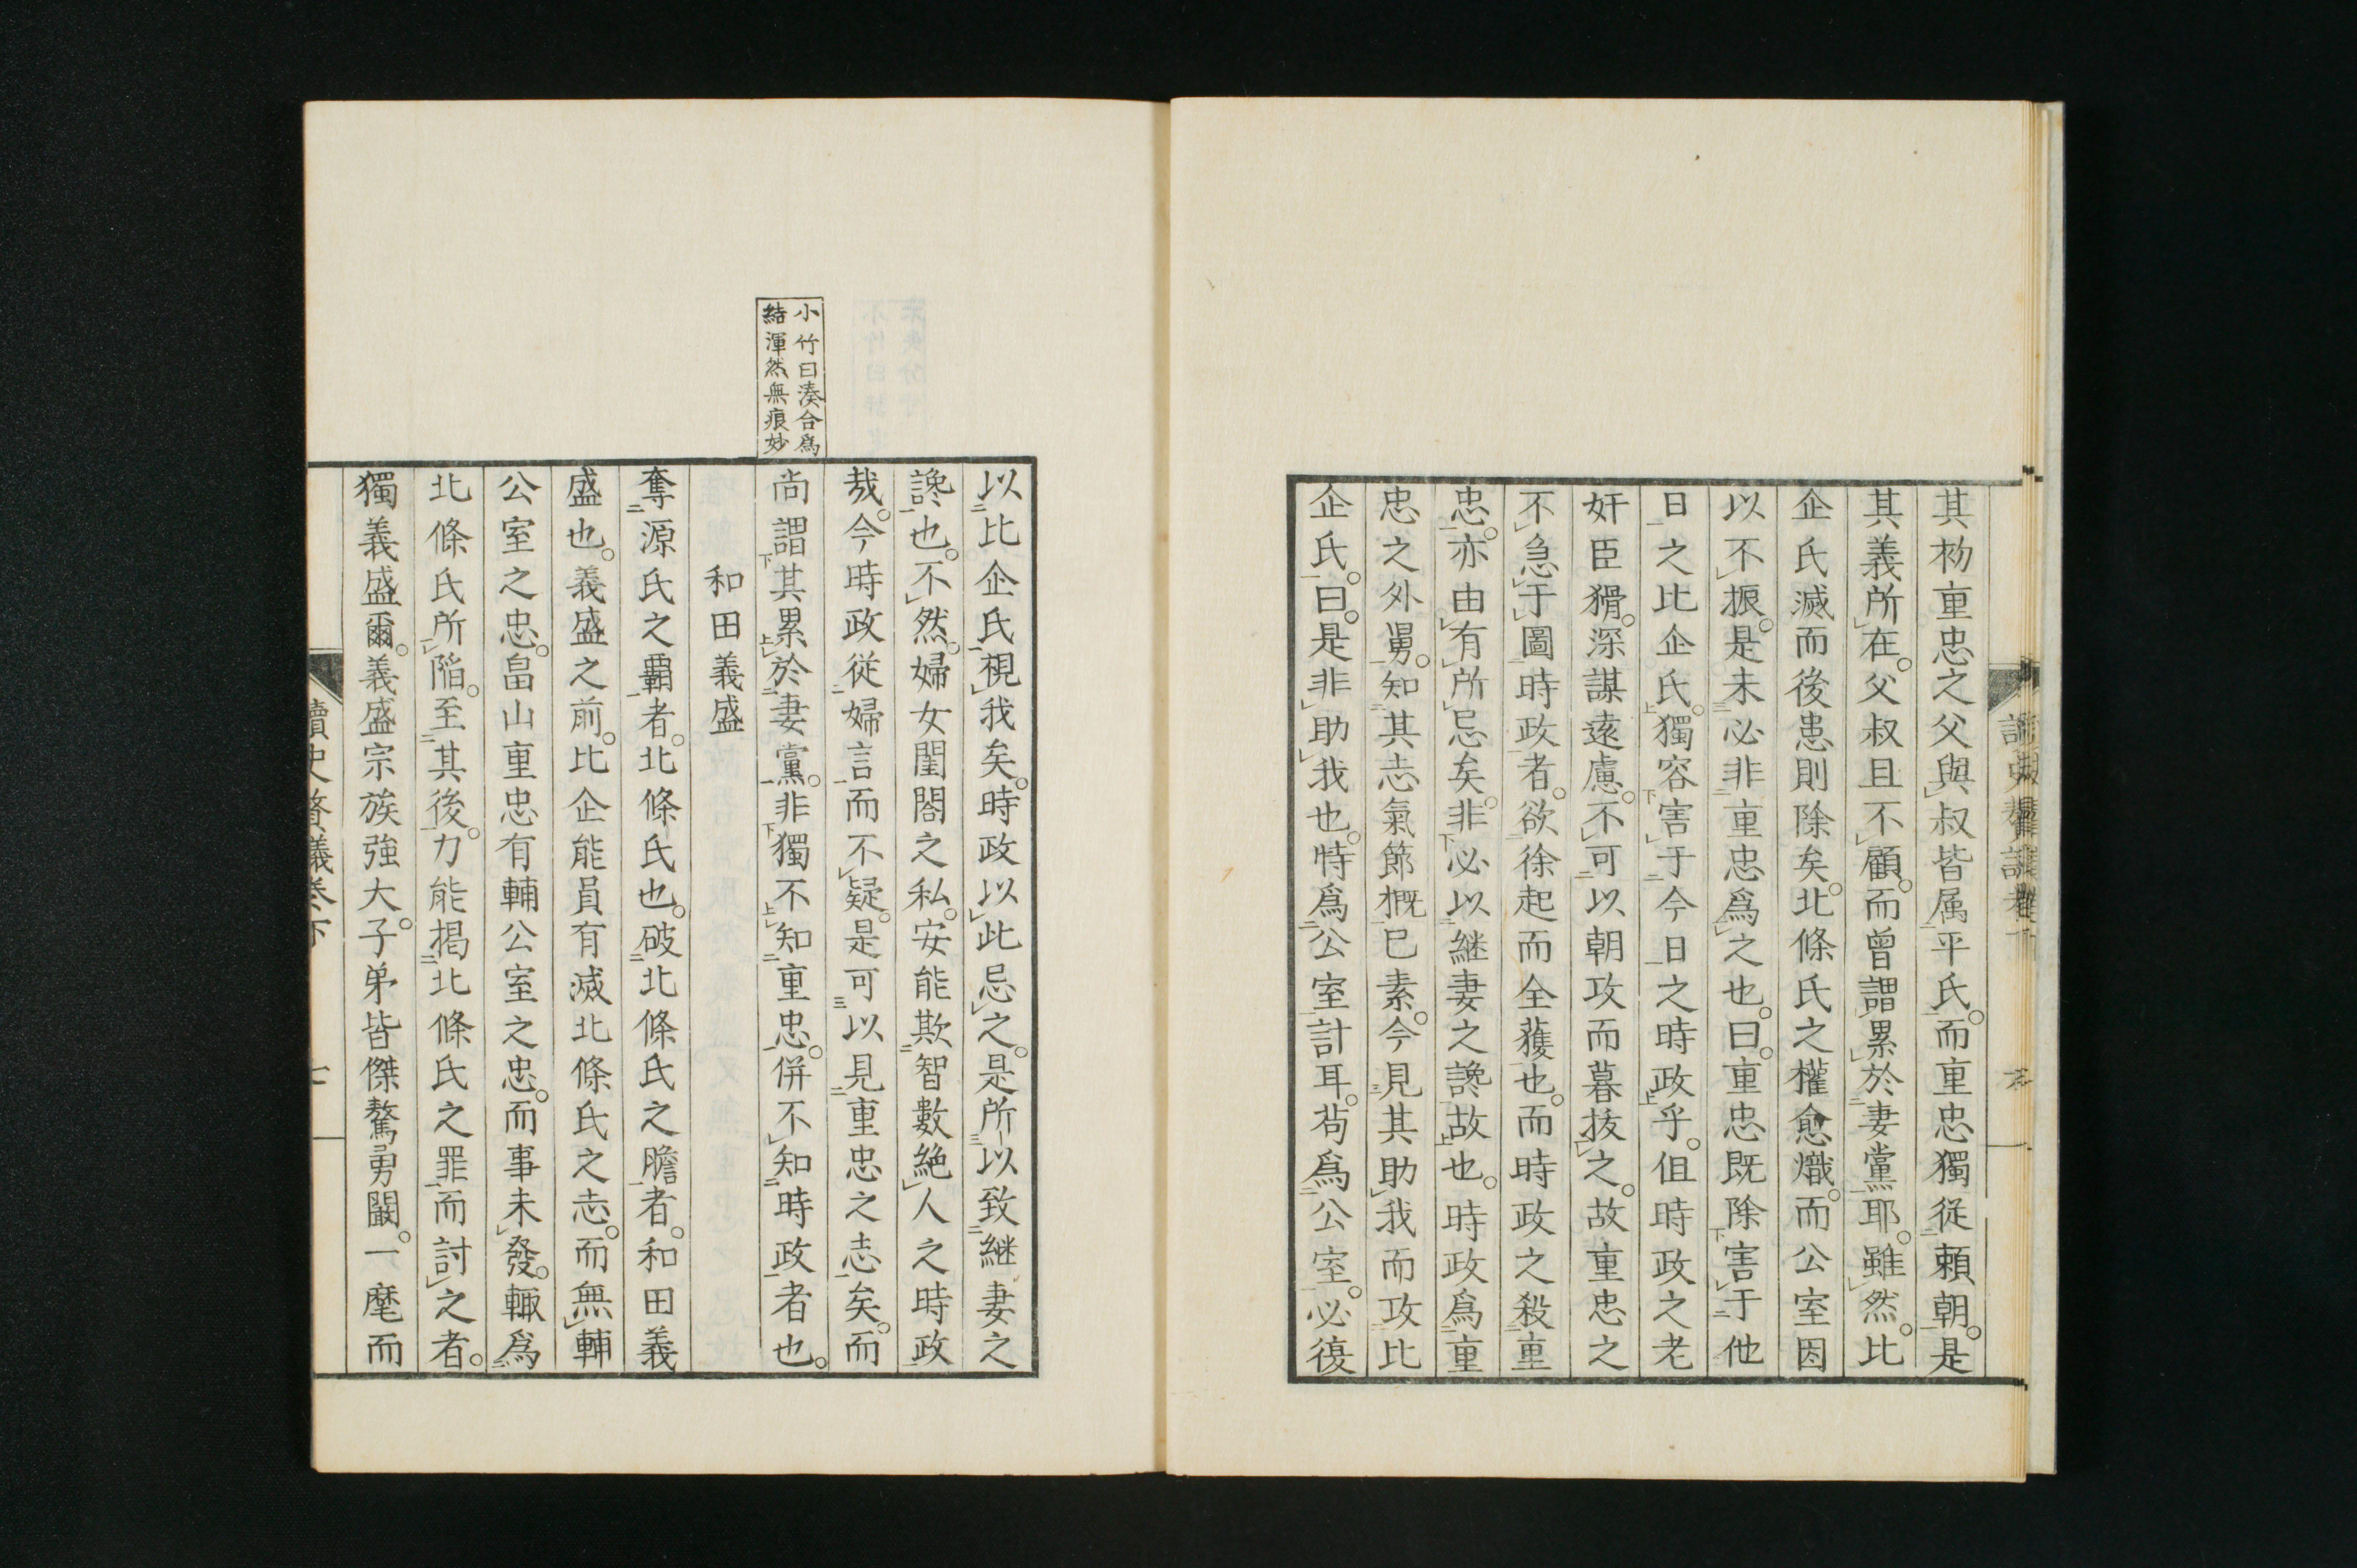 其初重忠之父與叔皆属平氏。而重忠獨從頼朝。是
其義所在。父叔且不顧。而曾謂累於妻黨耶。雖然。比
企氏滅而後患則除矣。北條氏之權愈熾。而公室因
以不振。是未必非重忠爲之也。曰。重忠既除害于他
日之比企氏。獨容害于今日之時政乎。伹時政之老
奸臣猾。深謀遠慮。不可以朝攻而暮拔之。故重忠之
不急于圖時政者。欲徐起而全獲也。而時政之殺重
忠。亦由有所忌矣。非必以継妻之讒故也。時政爲重
忠之外舅。知其志氣節概已素。今見其助我而攻比
企氏。曰。是非助我也。特爲公室計耳。苟爲公室。必復
以比企氏視我矣。時政以此忌之。是所以致継妻之
讒也。不然。婦女閨閤之私。安能欺智數絶人之時政
哉。今時政從婦言而不疑。是可以見重忠之志矣。而
尚謂其累於妻黨。非獨不知重忠。併不知時政者也。
小竹曰湊合爲
結渾然無痕妙
和田義盛
奪源氏之覇者。北條氏也。破北條氏之膽者。和田義
盛也。義盛之前。比企能員有滅北條氏之志。而無輔
公室之忠。畠山重忠有輔公室之忠。而事未發。輙爲
北條氏所陷。至其後。力能揭北條氏之罪而討之者。
獨義盛爾。義盛宗族強大。子弟皆傑驁勇闞。一麾而
讀史贅議卷下